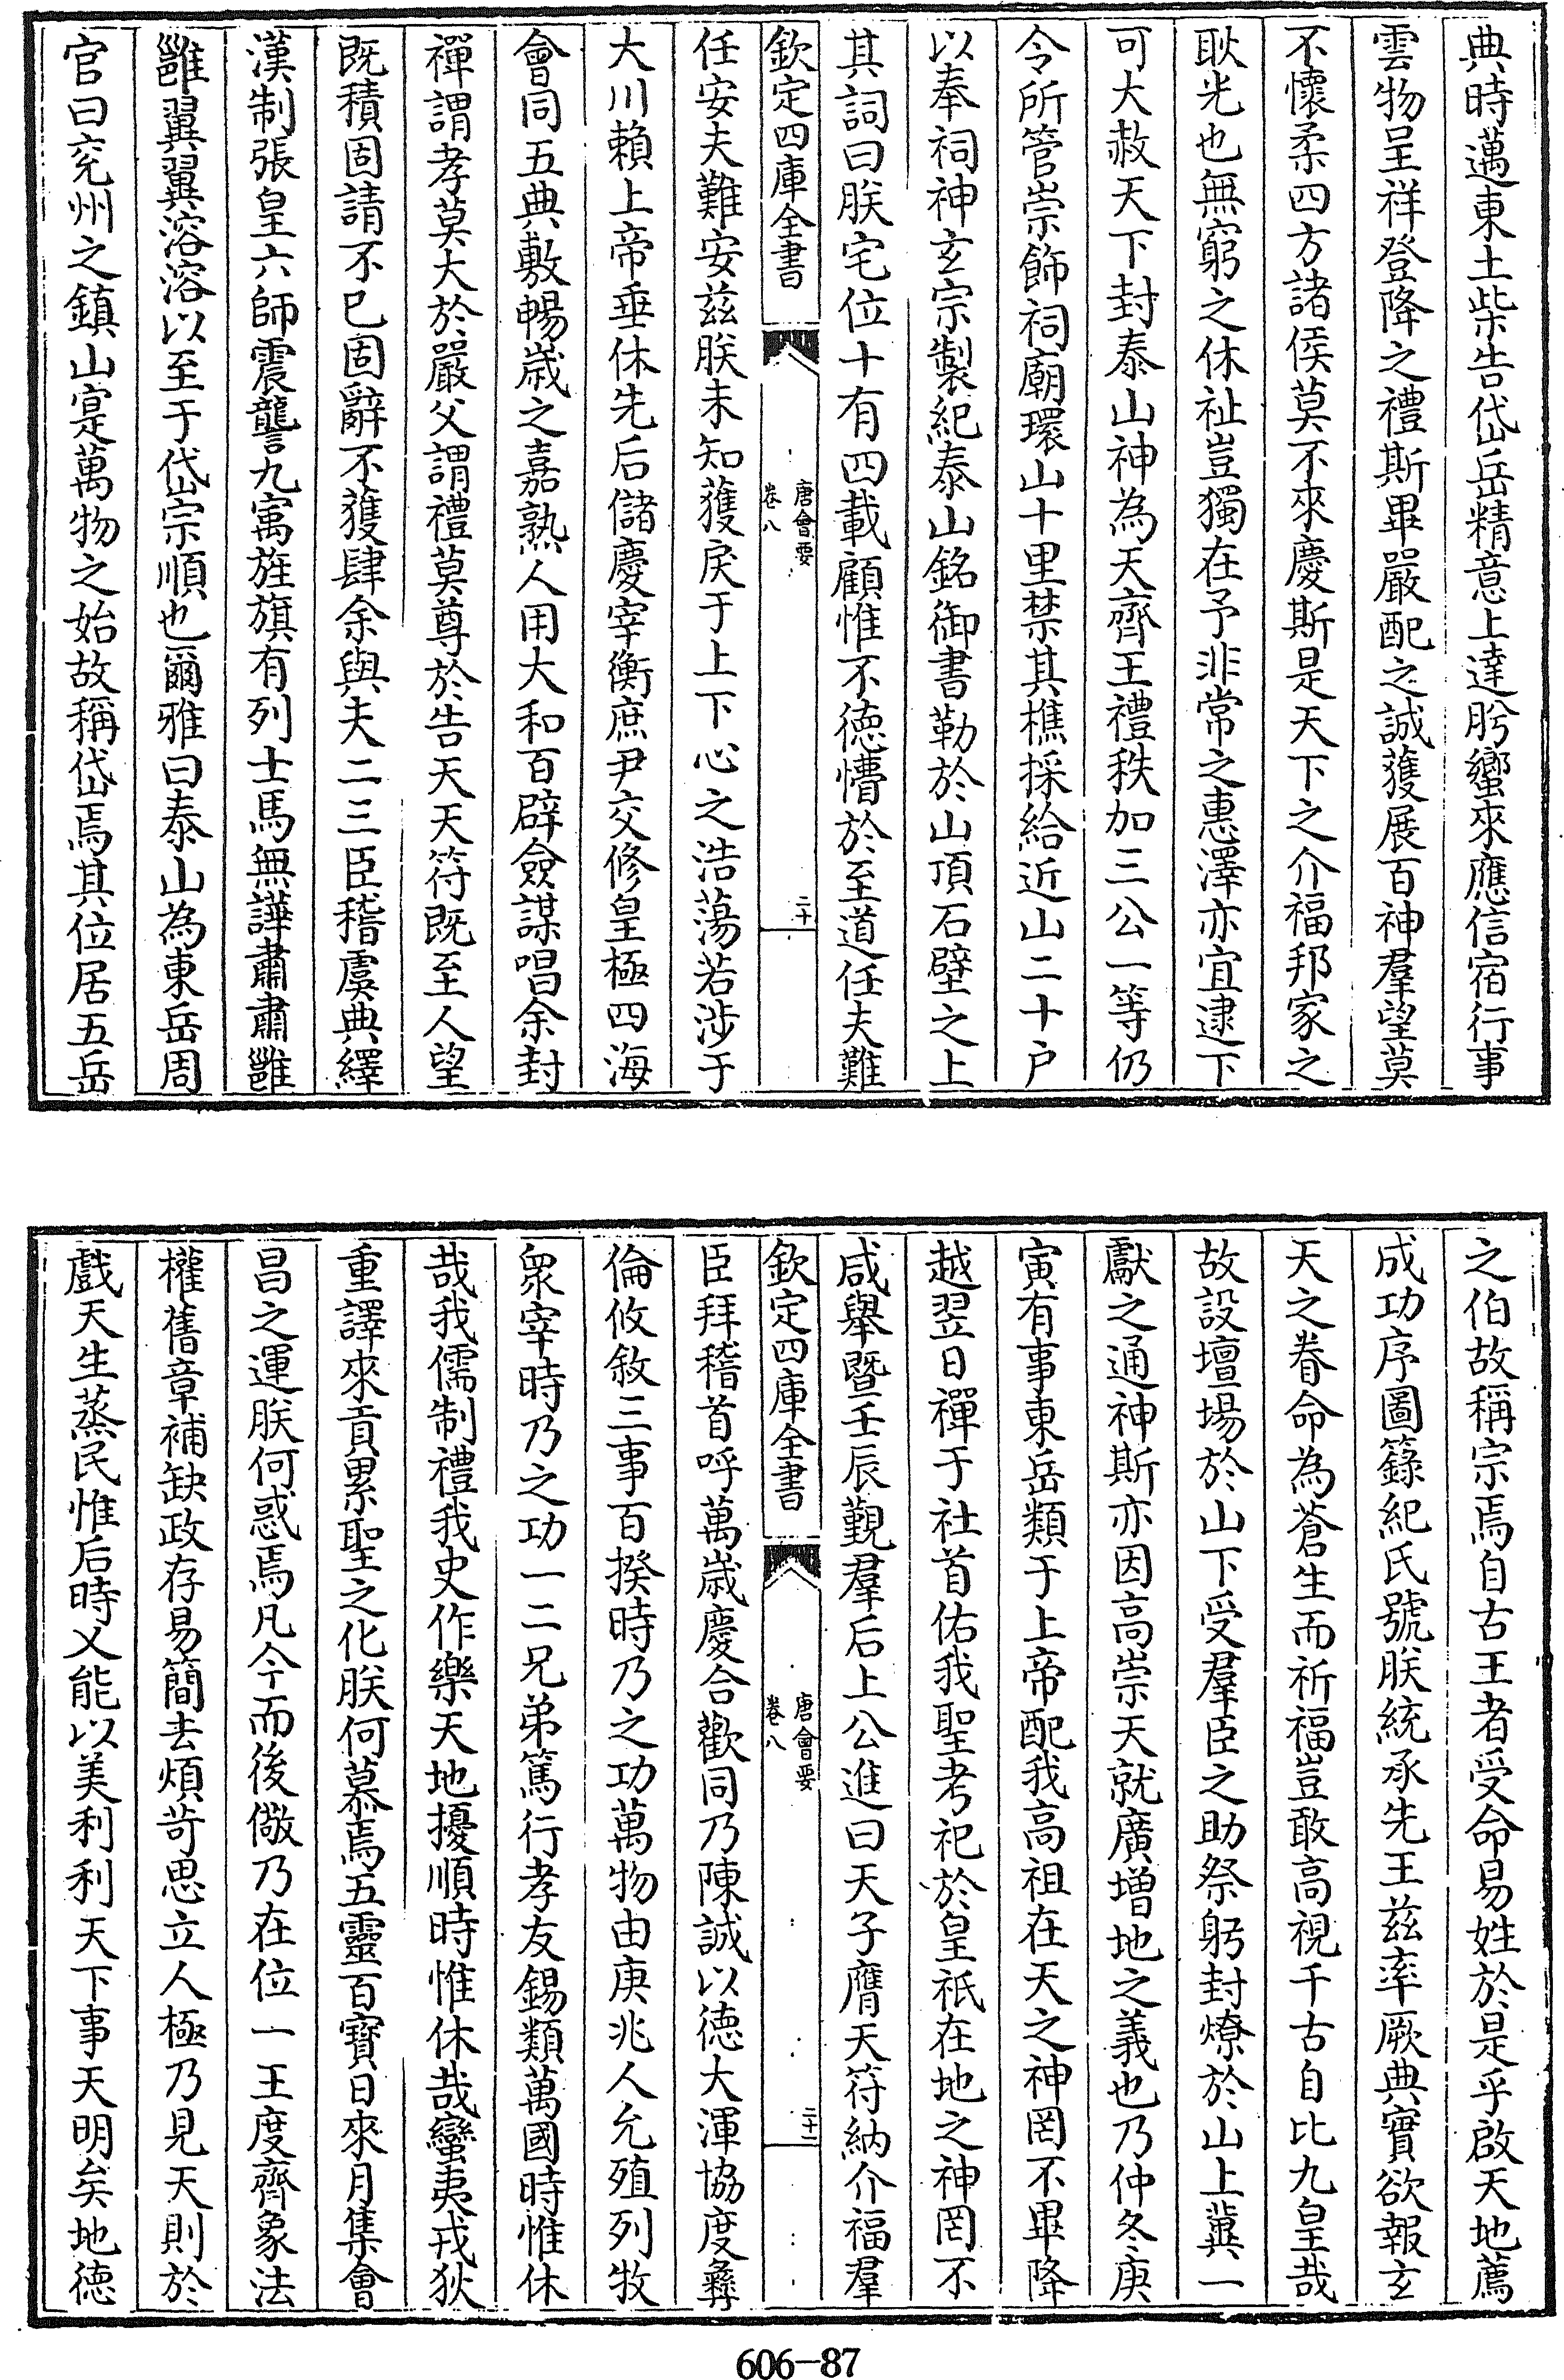 典時邁東土柴告岱岳精意上達肹蠁來應信宿行事
雲物呈祥登降之禮斯畢嚴配之誠獲展百神羣望莫
不懷柔四方諸侯莫不來慶斯是天下之介福邦家之
耿光也無窮之休祉豈獨在予非常之惠澤亦宜逮下
可大赦天下封泰山神為天齊王禮秩加三公一等仍
令所管崇飾祠廟環山十里禁其樵採給近山二十户
以奉祠神玄宗製紀泰山銘御書勒於山頂石壁之上
其詞曰朕宅位十有四載顧惟不德懵於至道任夫難
欽定四庫全書
唐會要
卷八
二十
任安夫難安兹朕未知獲戾于上下心之浩蕩若涉于
大川賴上帝垂休先后儲慶宰衡庶尹交修皇極四海
會同五典敷暢歲之嘉熟人用大和百辟僉謀唱余封
禪謂孝莫大於嚴父謂禮莫尊於告天天符既至人望
既積固請不已固辭不獲肆余與夫二三臣稽虞典繹
漢制張皇六師震讋九㝢旌旗有列士馬無譁肅肅雝
雝翼翼溶溶以至于岱宗順也爾雅曰泰山為東岳周
官曰兖州之鎮山寔萬物之始故稱岱焉其位居五岳
之伯故稱宗焉自古王者受命易姓於是乎啟天地薦
成功序圖籙紀氏號朕統承先王兹率厥典實欲報玄
天之眷命為蒼生而祈福豈敢高視千古自比九皇哉
故設壇場於山下受羣臣之助祭躬封燎於山上冀一
獻之通神斯亦因高崇天就廣增地之義也乃仲冬庚
寅有事東岳類于上帝配我高祖在天之神罔不畢降
越翌日禪于社首佑我聖考祀於皇祇在地之神罔不
咸舉暨壬辰覲羣后上公進曰天子膺天符納介福羣
欽定四庫全書
唐會要
卷八
二十一
臣拜稽首呼萬歲慶合歡同乃陳誠以德大渾協度彝
倫攸敘三事百揆時乃之功萬物由庚兆人允殖列牧
衆宰時乃之功一二兄弟篤行孝友錫類萬國時惟休
哉我儒制禮我史作樂天地擾順時惟休哉蠻夷戎狄
重譯來貢累聖之化朕何慕焉五靈百寳日來月集會
昌之運朕何惑焉凡今而後儆乃在位一王度齊象法
權舊章補缺政存易簡去煩苛思立人極乃見天則於
戲天生蒸民惟后時乂能以美利利天下事天明矣地德
606-87